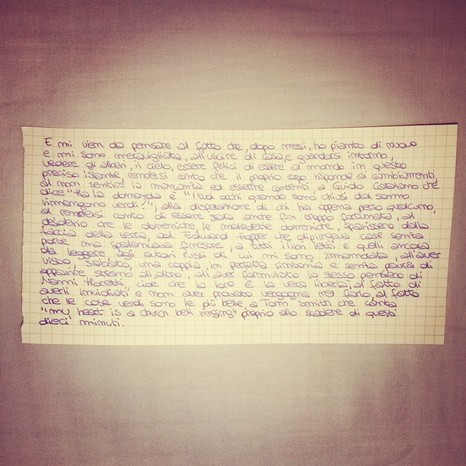 E mi vien da pensare al fatto che, dopo mesi, ho pianto di nuovo
e mi sono meravigliata, all'uscire di casa e guardarsi intorno,
vedere gli alberi, il cielo, essere felici di essere al mondo in questo
preciso istante, rendersi conto che il proprio corpo risponde ai cambiamenti,
al non sentire la mancanza ed essere contenti, a Guido Catalano che
dice "Ho la domanda è "i tuoi occhi quando sono chiusi dal sonno
rimangono verdi?", alla disperazione di chi ha appena perso qualcuno,
al rendersi conto di essere sola anche fin troppo fortunata, al
desiderio che le domeniche, le maledette domeniche, spariscano dalla
faccia della terra, ad Edward Hopper che dipingeva case senza
porte ma finestre, a tutti i libri letti e quelli ancora
da leggere agli autori russi di cui mi sono innamorata, all'aver
visto, salutato, una coppia, in perfetta sintonia e senza paura di
apparire strano all'altro, all'aver condiviso lo stesso pensiero di
Nanni Moretti cioè che la è la vera libertà, al fatto di
averli invidiati e non aver provato vergogna nel farlo, al fatto
che le cose verdi sono le più belle a Tom Smith che canta
"my heart is a church bell ringing" proprio allo scadere di questi
dieci minuti.